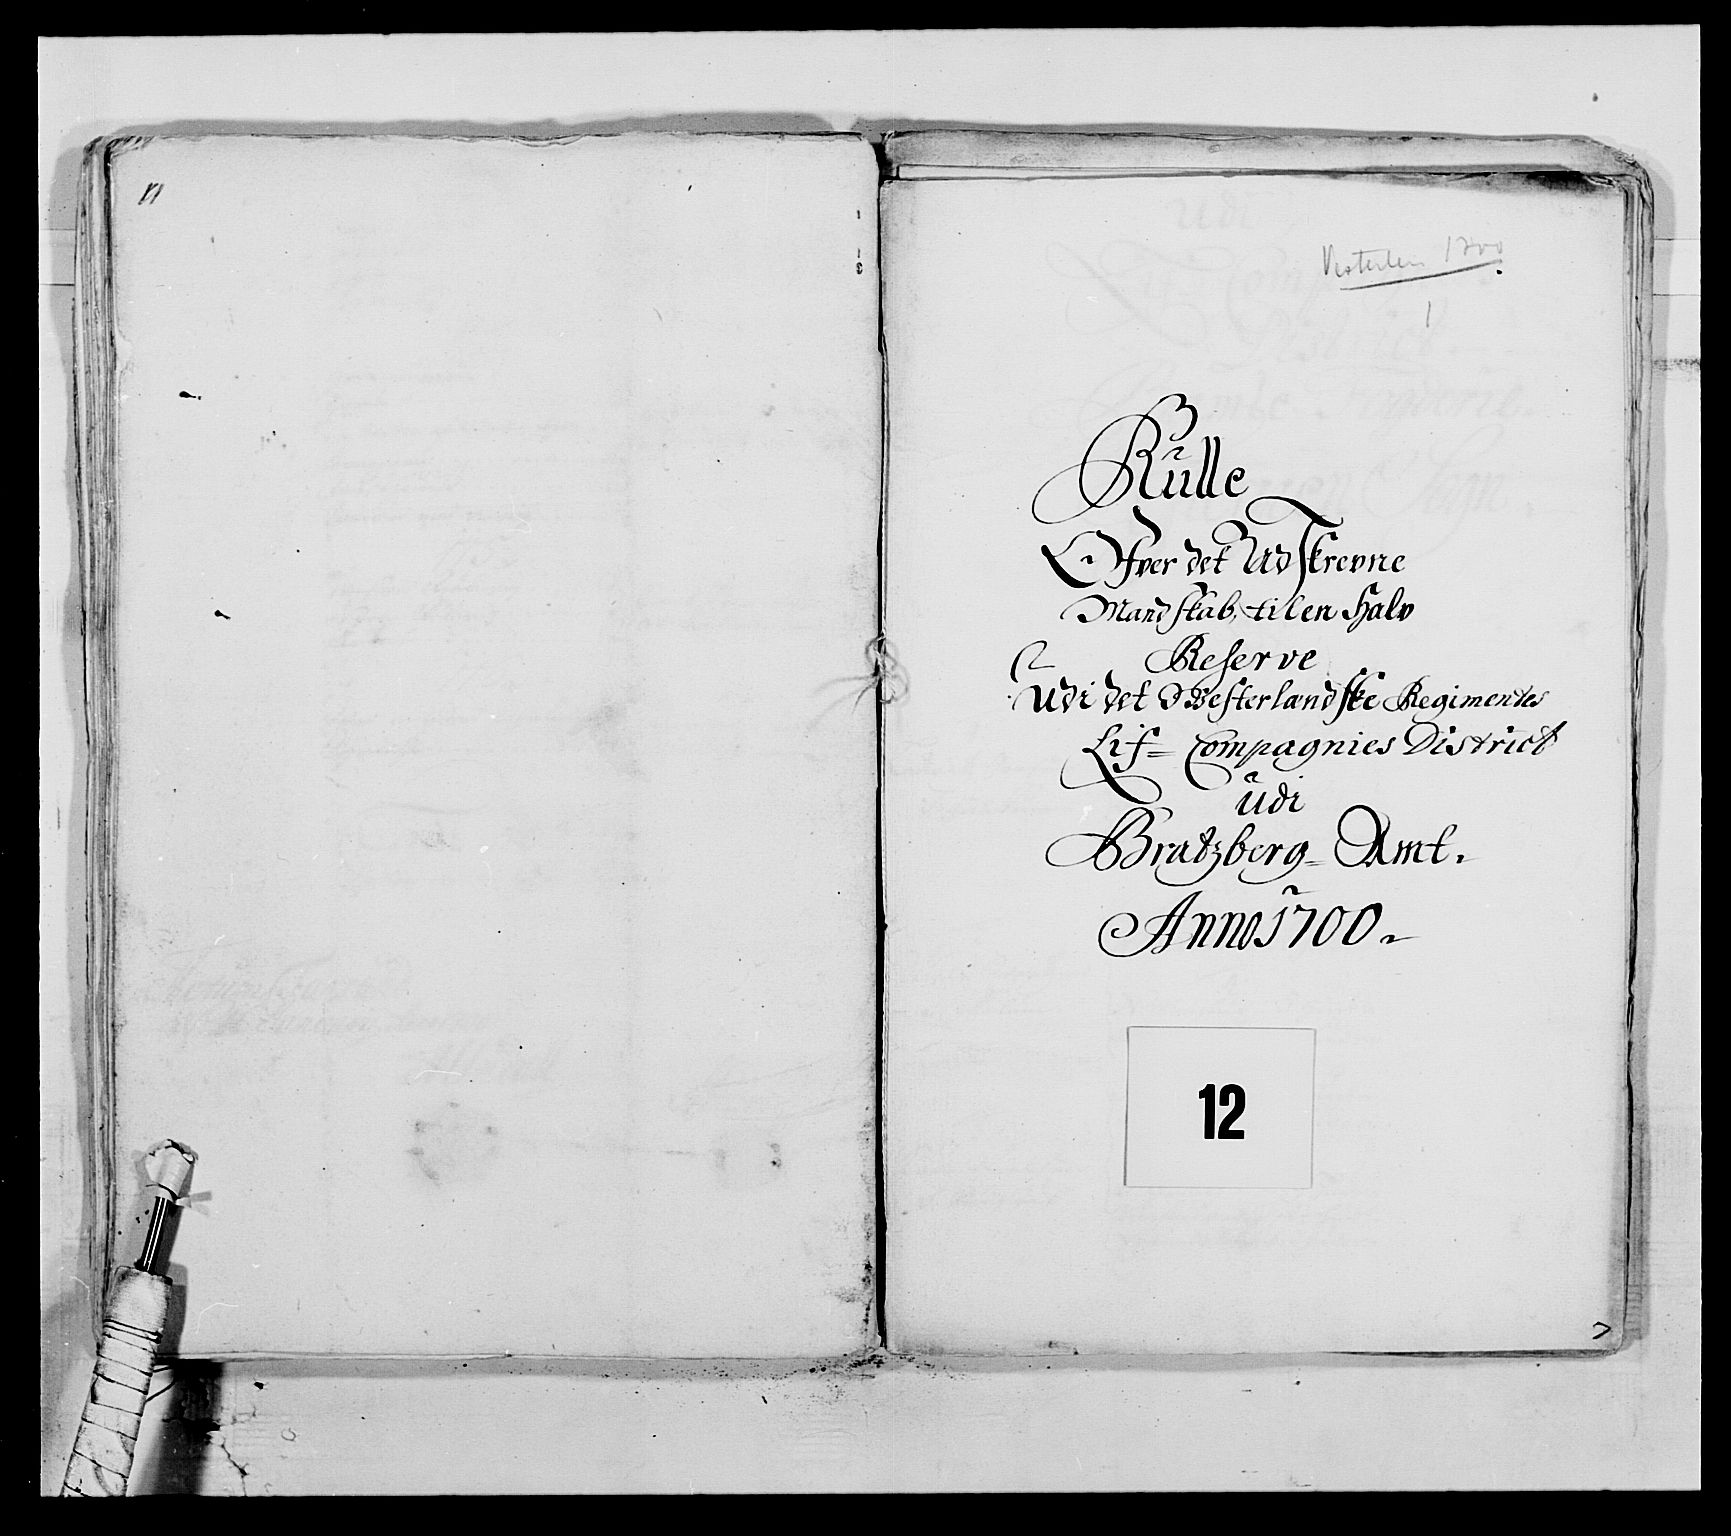 Vesterlen 1700
1
Rulle
Ofver det Udskrevne
Mandskab, til en Halv
Reserve
Udi det Westerlandske Regimentes
Lif= Compagnies District
Udi
Bratzberg= Amt.
Anno 1700.
12
7